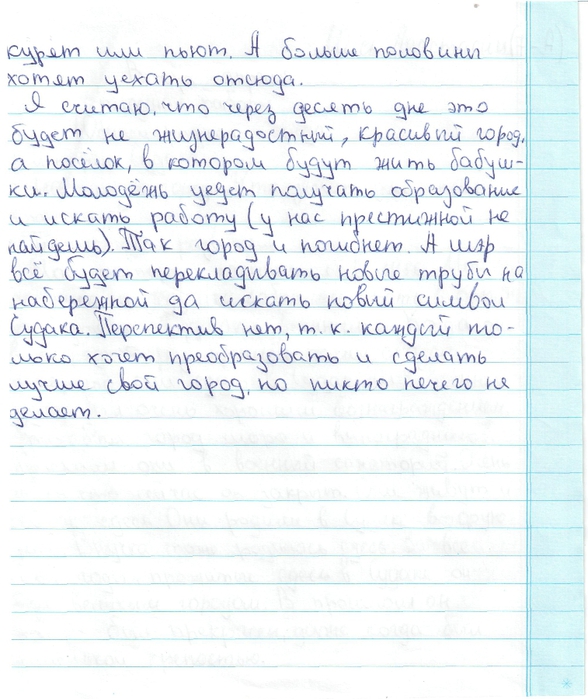 курят или пьют. А больше половины
хотят уехать отсюда.
Я считаю, что через десять дне это
будет не жизнерадостный, красивый город,
а посёлок, в котором будут жить бабуш-
ки. Молодёжь уедет получать образование
и искать работу (у нас престижной не
найдешь). Так город и погибнет. А мэр
всё будет перекладывать новые трубы на
набережной да искать новый символ
Судака. Перспектив нет, т. к. каждый то-
лько хочет преобразовать и сделать
лучше свой город, но никто нечего не
делает.